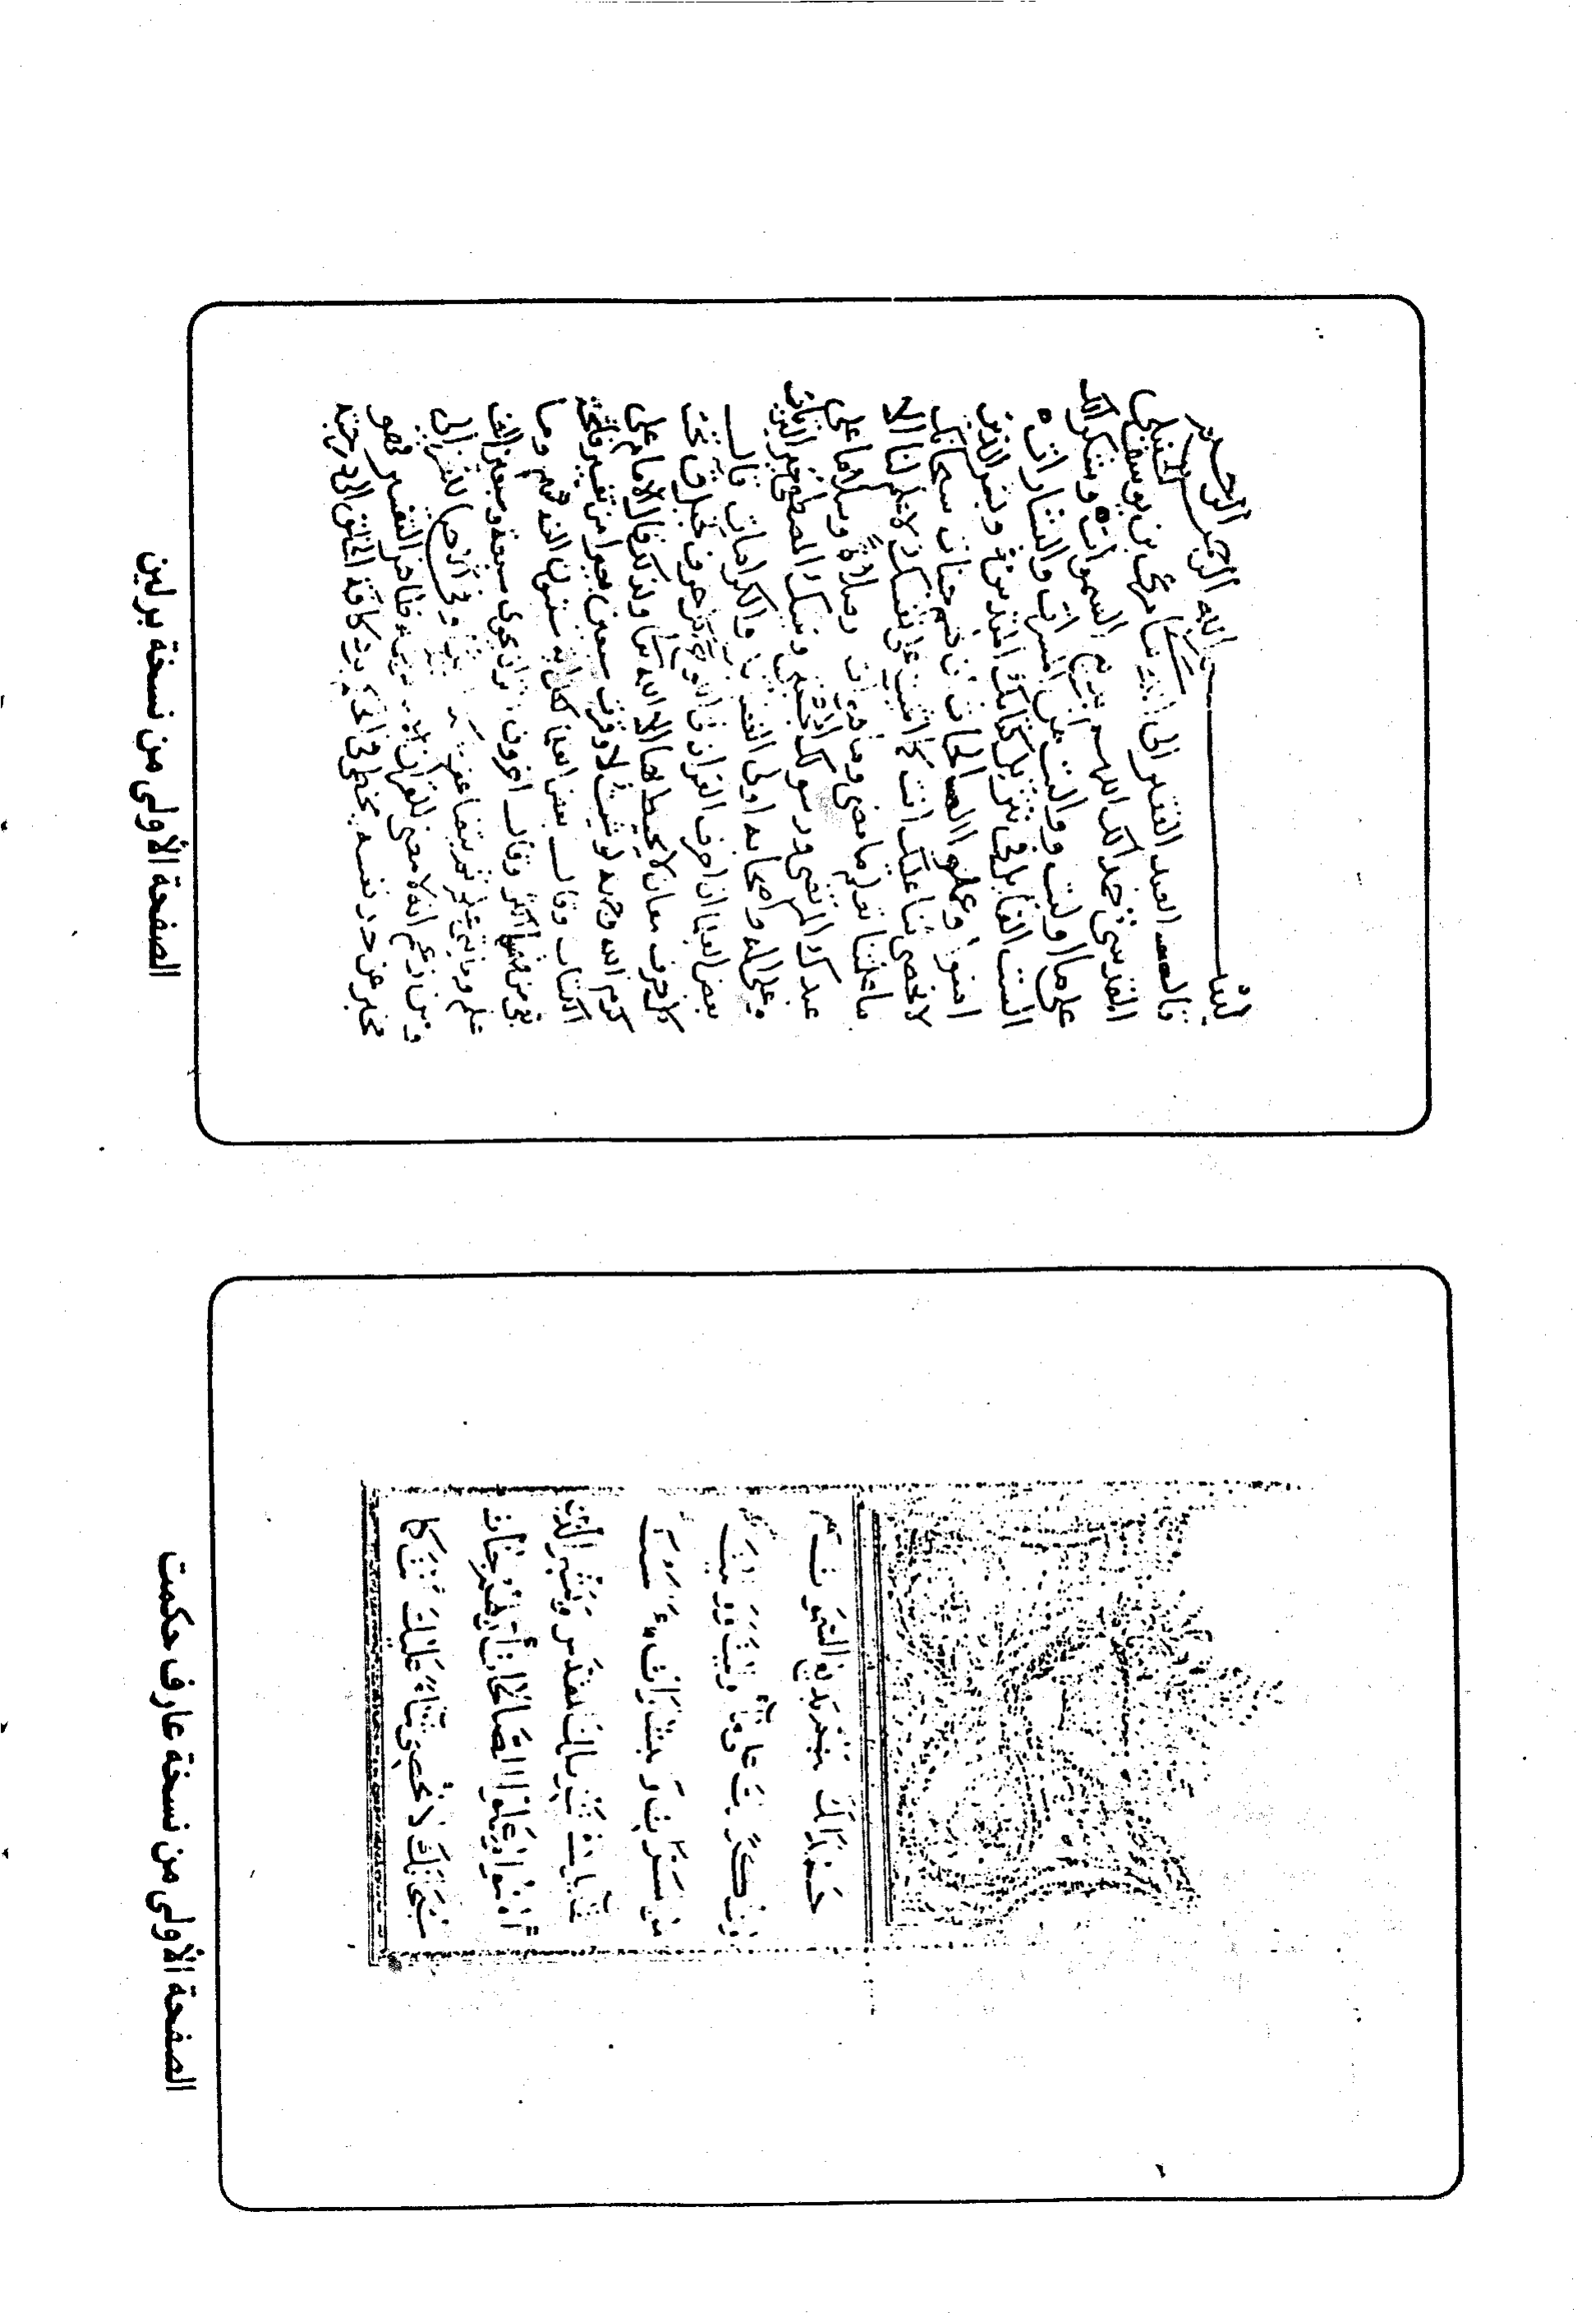 حمدا لك اللهم بديع السموات
ونشكرك على ما أوليت ووليت
من مسرات وبشارات
وبشر الذين
آمنوا وعملوا الصالحات أن لهم جنات
سبحانك لا نحصي ثناء عليك كما
الصفحة الأولى من نسخة عارف حكمت
بسم الله الرحمن الرحيم
قال العبد الفقير الى الله تعالى مرعي بن يوسف الحنبلي
القدسي حمدا لك اللهم بديع السموات ونشكرك
على ما اوليت ووليت من المسرات والبشارات
انت القايل في تنزيل كتابك القدس وبشر الذين
امنوا وعملوا الصالحات ان لهم جنات سبحانك
لا نحصي ثنا عليك انت كما اثنيت على نفسك لا علم لنا الا
ما علمتنا تعلم ما مضى وما هو ات وصلاةً وسلاما على
عبدك المرتضى ورسولك ونبيك المصطفى خير
وعلى اله واصحابه اولى الفضل والكرامات قال
بعض العلما ان احرف القران في اللوح كل حرف بقدر جبل ق تحت
كل حرف معان لا يحيط بها الا الله تعالى ولذلك قال الامام علي
كرم الله وجهه لو شيت لاوقرت سبعين بعيرا من تفسير فاتحة
الكتاب وقال بعض العلما لكل اية ستون الف فهم وما
بقي من فهمها اكثر وقال اخرون القران يحوي سبعة وسبعين الف
علم ومايتي علم ثم يتضاعف وفي الاحيا للغزالي
ومن زعم انه لا معنى للقران الا ظاهر التفسير فهو
مخبر عن حد نفسه مخطي في الحكم برد كافة الخلق الى درجته
الصفحة الأولى من نسخة برلين